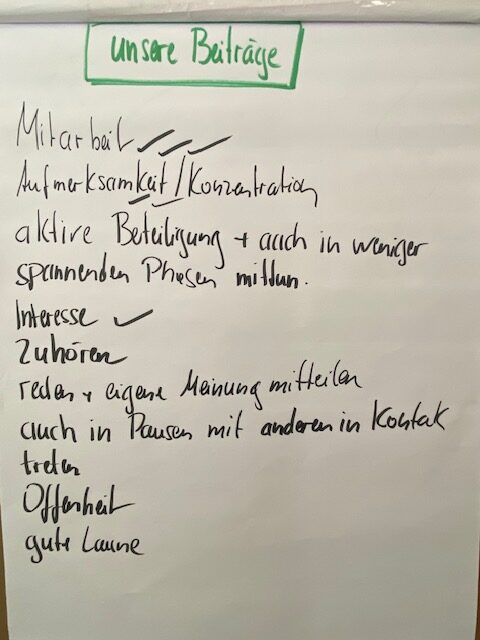 unsere Beiträge
Mitarbeit
Aufmerksamkeit / Konzentration
aktive Beteiligung + auch in weniger
spannenden Phasen mittun.
Interesse ✓
Zuhören
reden + eigene Meinung mitteilen
auch in Pausen mit anderen in Kontak
treten
Offenheit
gute Laune